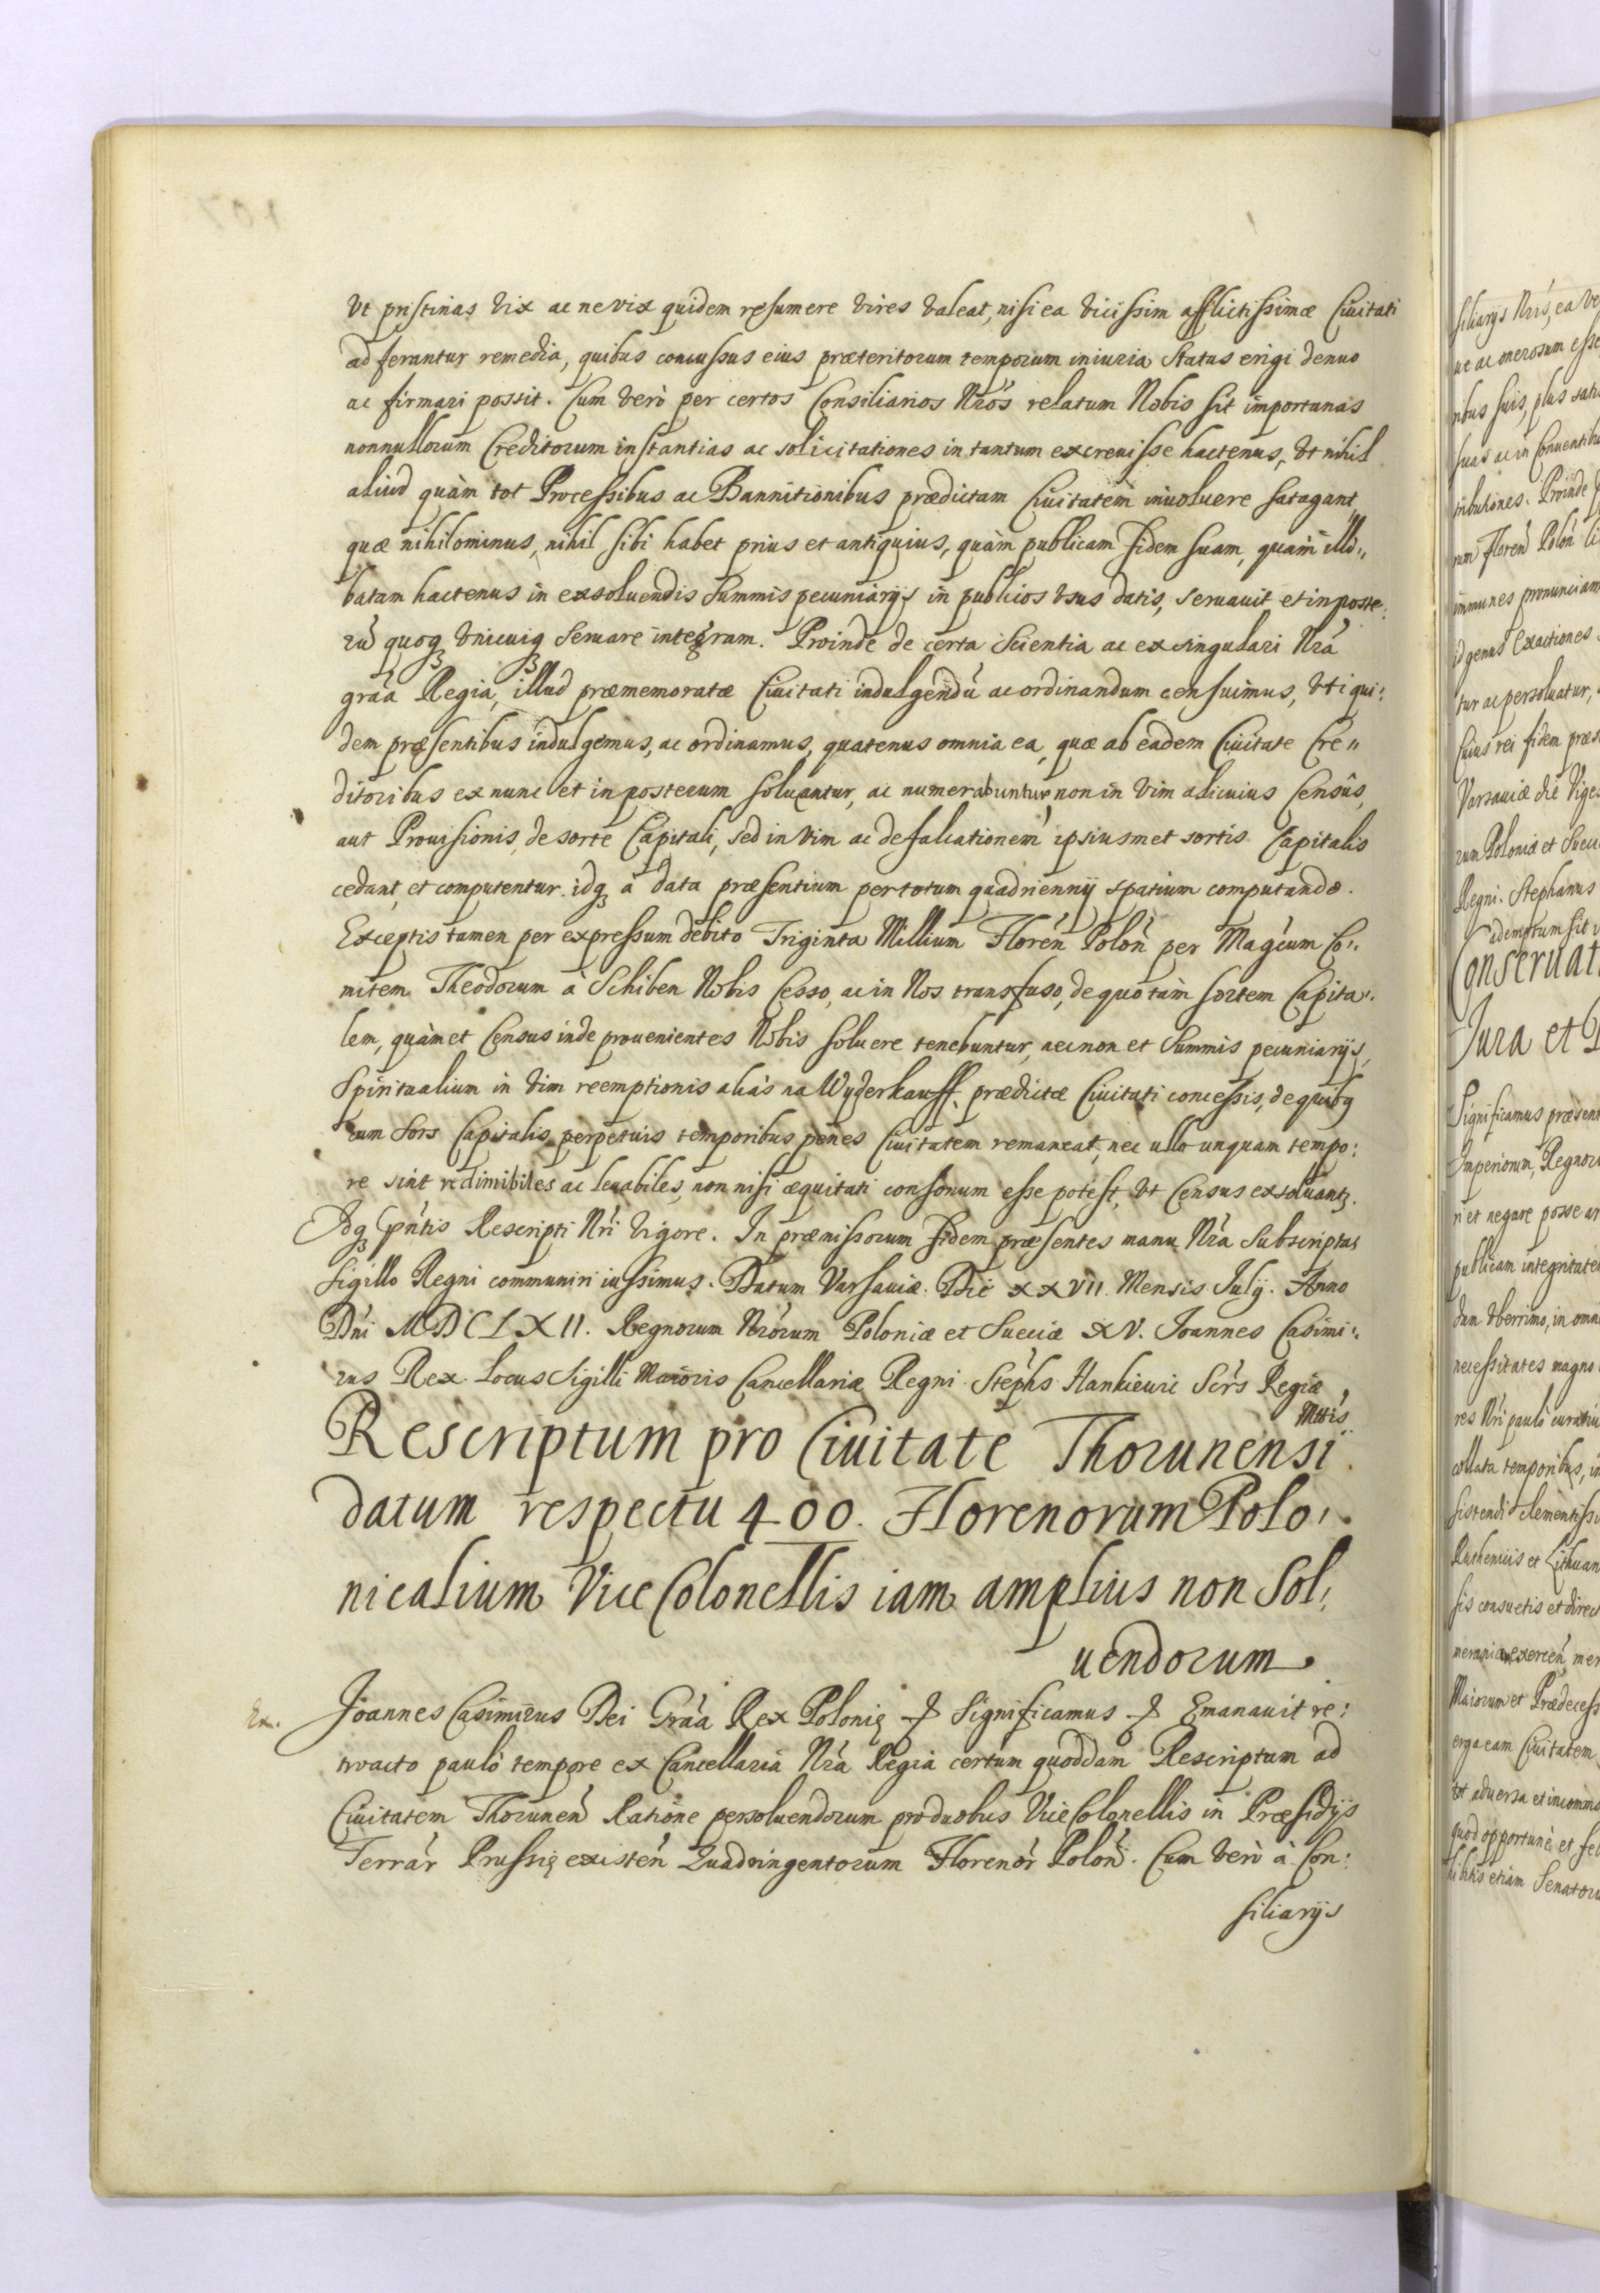 Vt pristinas vix ac ne vix quidem resumere vires valeat, nisi ea vicissim afflictissimæ Ciuitati
adferantur remedia, quibus concussus eius præteritorum temporum iniuria Status erigi denuo
ac firmari possit. Cum verò per certos Consiliarios Nrõs relatum Nobis sit importunas
nonnullorum Creditorum instantias ac solicitationes in tantum excreuisse hactenus, vt nihil
aliud quàm tot Processibus ac Bannitionibus prædictam Ciuitatem inuoluere satagant,
quæ nihilominus, nihil sibi habet prius et antiquius, quàm publicam fidem suam, quam illi„
batam hactenus in exsoluendis Summis pecuniarijs in publicos vsus datis, seruauit et in poste:
rũ quoq₃ vnicuiq₃ seruare integram. Proinde de certa Scientia ac ex singulari Nrã
grãa Regia, illud præmemoratæ Ciuitati indulgendũ ac ordinandum censuimus, vti qui:
dem præsentibus indulgemus, ac ordinamus, quatenus omnia ea, quæ ab eadem Ciuitate Cre„
ditoribus ex nunc et in posterum soluantur, ac numerabuntur, non in vim alicuius Censûs,
aut Prouisionis, de sorte Capitali, sed in vim ac defalcationem ipsiusmet sortis Capitalis
cedant, et computentur. idq₃ à data præsentium per totum quadriennij spatium computandæ.
Exceptis tamen per expressum debito Triginta Millium Florẽn Polõn per Magcum Co:
mitem Theodorum à Schiben Nobis Cesso, ac in Nos transfuso, de quo tàm sortem Capita:
lem, quàm et Census inde prouenientes Nobis soluere tenebuntur, nec non et Summis pecuniarijs,
Spiritualium in vim reemptionis aliàs na Wyderkauff, prædictæ Ciuitati concessis, de quibq
cum Sors Capitalis perpetuis temporibus penes Ciuitatem remaneat, nec ullo unquam tempo:
re sint redimibiles ac leuabiles, non nisi æquitati consonum esse potest, vt Census exsoluantr.
Idq₃ pñtis Rescripti Nri vigore. In præmissorum fidem præsentes manu Nrã Subscriptas
Sigillo Regni communiri iussimus. Datum Varsauiæ. Die XXVII. Mensis Julij. Anno
Dñi MDCLXII. Regnorum Nrõrum Poloniæ et Sueciæ XV. Joannes Casimi:
rus Rex. Locus Sigilli Maioris Cancellariæ Regni. Stephs Hankiewic Scrs Regiæ
Mttis
Rescriptum pro Ciuitate Thorunensi
datum respectu 400. Florenorum Polo:
nicalium Vice Colonellis iam amplius non Sol:
uendorum
Ex.
Joannes Casimirus Dei Grãa Rex Polonię  Significamus  Emanauit re:
troacto paulò tempore ex Cancellaria Nrã Regia certum quoddam Rescriptum ad
Ciuitatem Thorunẽn Ratione persoluendorum pro duobus Vice Colonellis in Præsidijs
Terrãr Prussię existẽn Quadringentorum Florenõr Polõn. Cum verò à Con:
siliarijs
siliarijs Nris, ea
ue ac onerosum esse
ribus suis, plus
suas ac in Conuentib
tributiones. Proinde
rum Florẽn Polõn
immunes pronunciam
id genus Exactiones
tur ac persoluatur,
Cuius rei fidem præs
Varsauiæ die Viges
rum Poloniæ et Suec
Regni. Stephanus
Conseruat
Jura et
Significamus præsent
Imperiorum, Regnor
et negare posse
publicam integritate
dum vberrimo, in omn
necessitates magno
res Nri paulò
collata temporibus,
sistendi clementiss
Rutheniis et Lithuan
sis consuetis et direct
Maiorum et Prædecess
erga eam Ciuitatem
tot aduersa et incommo
quod opportunè et fe
etiam Senator